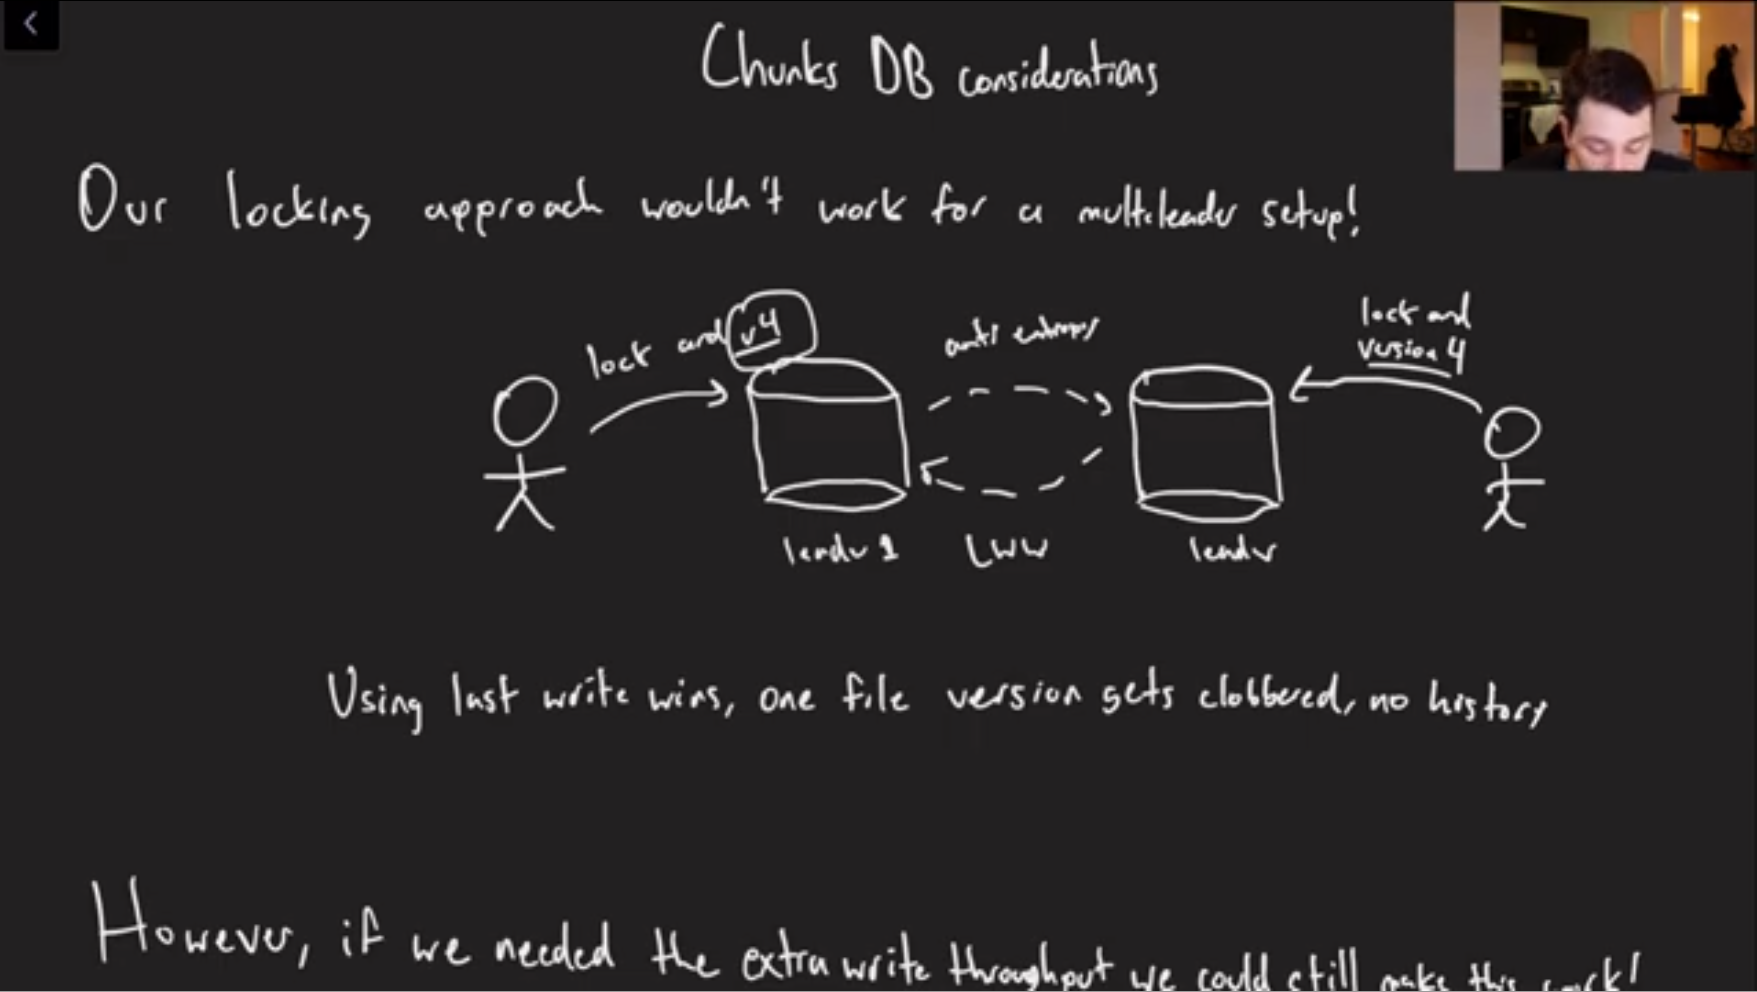 Chunks DB considerations
Our locking approach wouldn't work for a multileader setup!
lock and v4
anti entropy
lock and
version 4
leader 1
LWW
leader
Using last write wins, one file version gets clobbered, no history
However, if we needed the extra write throughput we could still make this work!